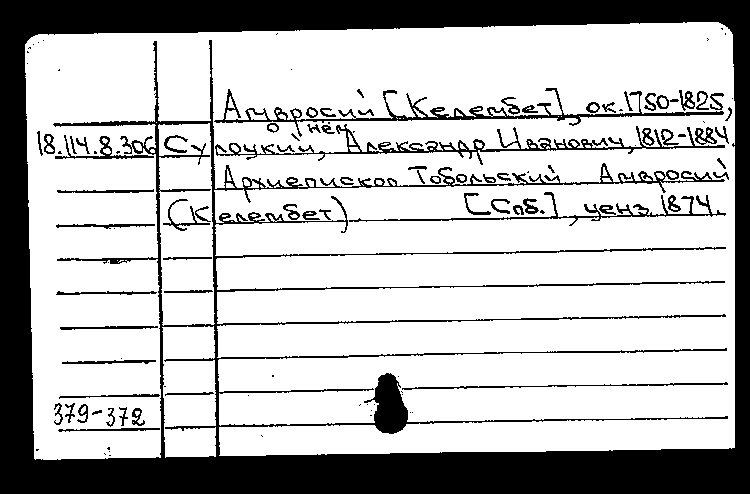 Амвросий [Келембет], ок. 1750-1825,
о нём
18.114.8.306 Сулоцкий, Александр Иванович, 1812-1884.
Архиепископ Тобольский Амвросий
(Келембет) [Спб.], ценз. 1874.
379-372